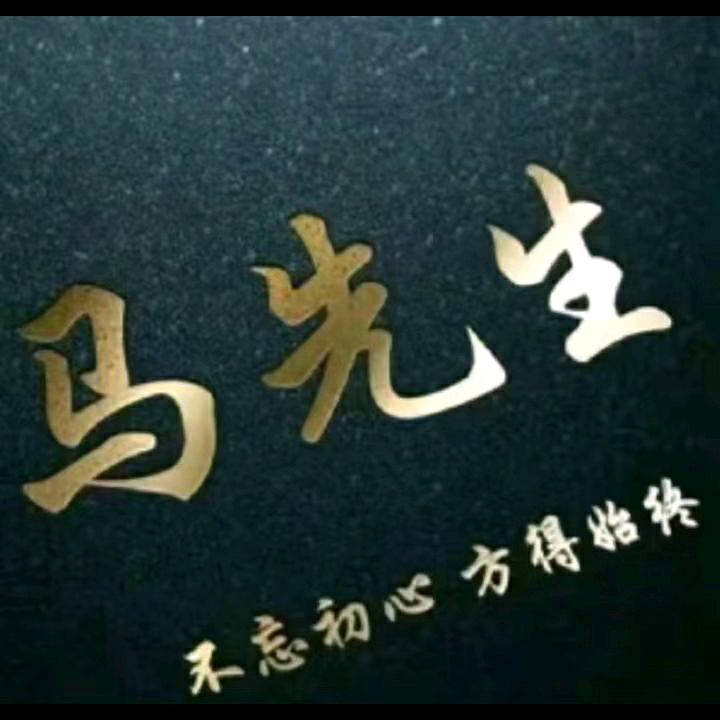 马先生
不忘初心 方得始终